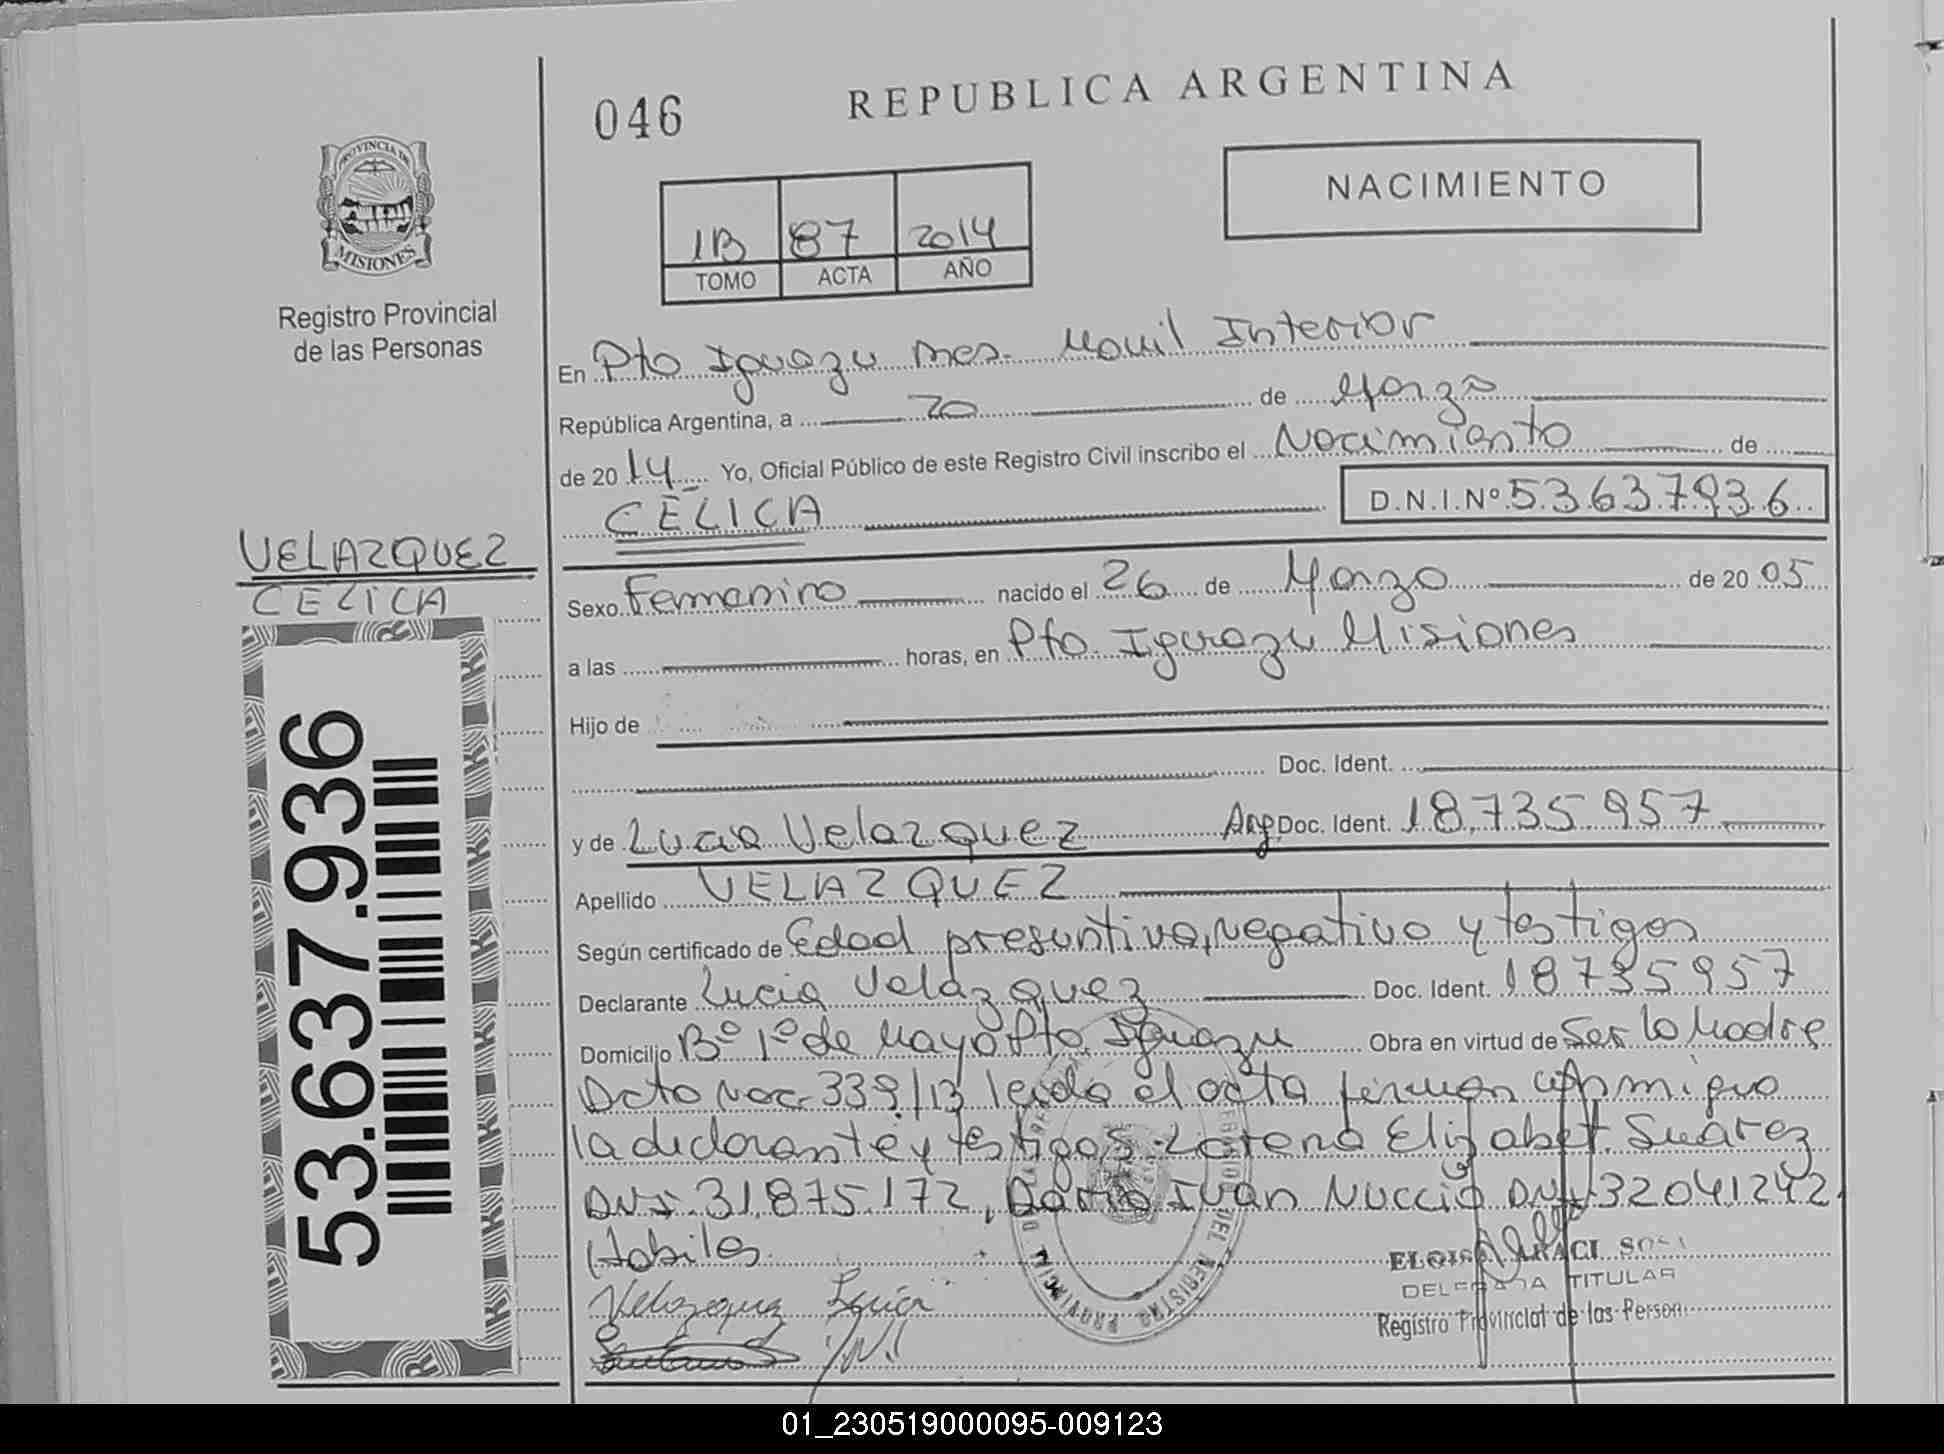 046
REPUBLICA ARGENTINA
NACIMIENTO
1B 87 2014
TOMO ACTA AÑO
PROVINCIA DE
MISIONES
Registro Provincial
de las Personas
En Pto Iguazu Mes. Movil Interior
República Argentina, a 20 de Marzo
de 2014 Yo, Oficial Público de este Registro Civil inscribo el Nacimiento de
CELICA D.N.I.Nº 53637936
VELAZQUEZ
CELICA
53.637.936
Sexo Femenino nacido el 26 de Marzo de 2005
a las horas, en Pto. Iguazu Misiones
Hijo de
Doc. Ident.
y de Lucia Velazquez Arg. Doc. Ident. 18.735.957
Apellido VELAZQUEZ
Según certificado de Edad presuntiva, negativo y testigos
Declarante Lucia Velazquez Doc. Ident. 18735957
Domicilio Bº 1º de Mayo Pto. Iguazu Obra en virtud de Ser la Madre
Dcto Nac. 339/13 leida el acta firman conmigo
la declarante y testigos. Lorena Elizabet. Suarez
DNI. 31.875.172, Dario Ivan Nuccio DNI 32041242
Habiles
Velazequz Lucia
ELOISA ARACI SOSA
DELEGADA TITULAR
Registro Provincial de las Person
01_230519000095-009123